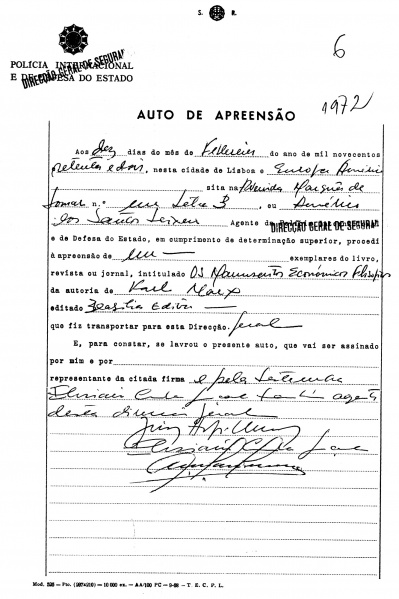 S. R.
6
POLÍCIA INTERNACIONAL
E DE DEFESA DO ESTADO
DIRECÇÃO GERAL DE SEGURANÇA
1972
AUTO DE APREENSÃO
Aos dez dias do mês de Fevereiro do ano de mil novecentos
setenta e dois, nesta cidade de Lisboa e Europa América
sita na Avenida Marquês de
Tomar n.º um Letra B, eu Américo
dos Santos Seixas Agente de
DIRECÇÃO GERAL DE SEGURAN
e de Defesa do Estado, em cumprimento de determinação superior, procedi
à apreensão de um — exemplares do livro,
revista ou jornal, intitulado Os Manuscritos Económico Filosóficos
da autoria de Karl Marx
editado Brasilia Editora —
que fiz transportar para esta Direcção. Geral
E, para constar, se lavrou o presente auto, que vai ser assinado
por mim e por
representante da citada firma e pela testemunha
agente
desta direcção Geral
Mod. 526 — Pto. (907x210) — 10 000 ex. — AA/100 PC — 9-68 — T. E. C. P. L.